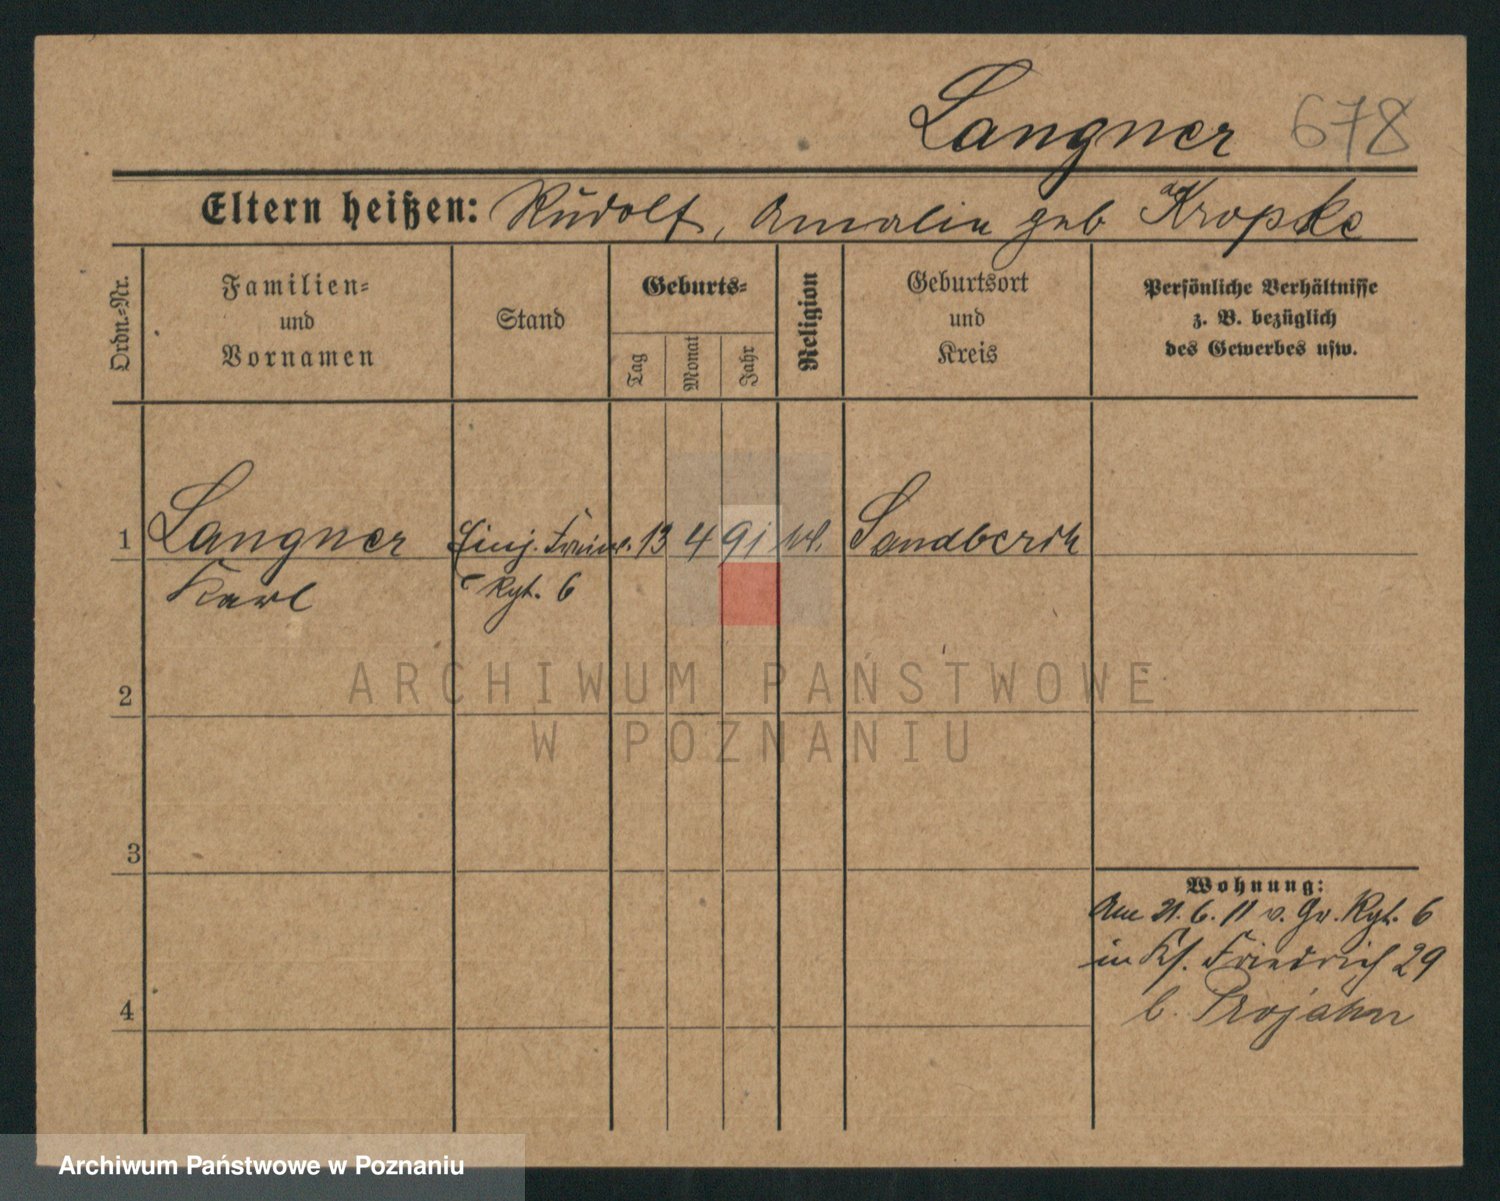 Langner 678
Eltern heißen: Rudolf, Amalie geb Kropke
Ordn.=Nr.
Familien=
und
Vornamen
Stand
Geburts=
Tag
Monat
Jahr
Religion
Geburtsort
und
Kreis
Persönliche Verhältnisse
z. B. bezüglich
des Gewerbes usw.
1 Langner Einj. Freiw. 13 4 91 Sandberth
Karl Rgt. 6
2
3
4
Wohnung:
Am 21. 6. 11 v. Gr. Rgt. 6
in Kf. Friedrich 29
b. Projahn
ARCHIWUM PAŃSTWOWE
W POZNANIU
Archiwum Państwowe w Poznaniu